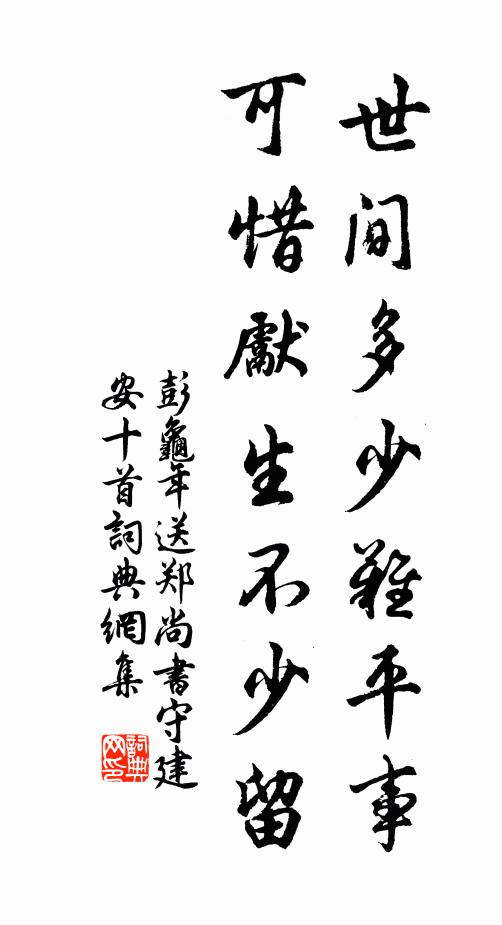 世间多少難平事
可惜獻生不少留
彭龜年送郑尚書守建
安十首詞典網集
詞典
网印